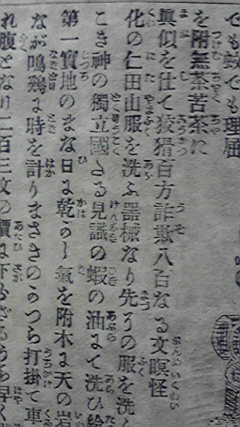 でも蚊でも理屈
を附無茶苦茶に
眞似を仕て狡猾百方詐欺八百なる文瞑怪
化の仁田山服を洗ふ器械なり先この服を洗
こき神の獨立國さる見識の蝦の油にて洗ひ給
第一實地のまな日に乾らし氣を附木に天の岩
なが鳴鷄に時を計りまさきのかつら打掛て車
れ腹となり二百三文の價に下らざるうち早く